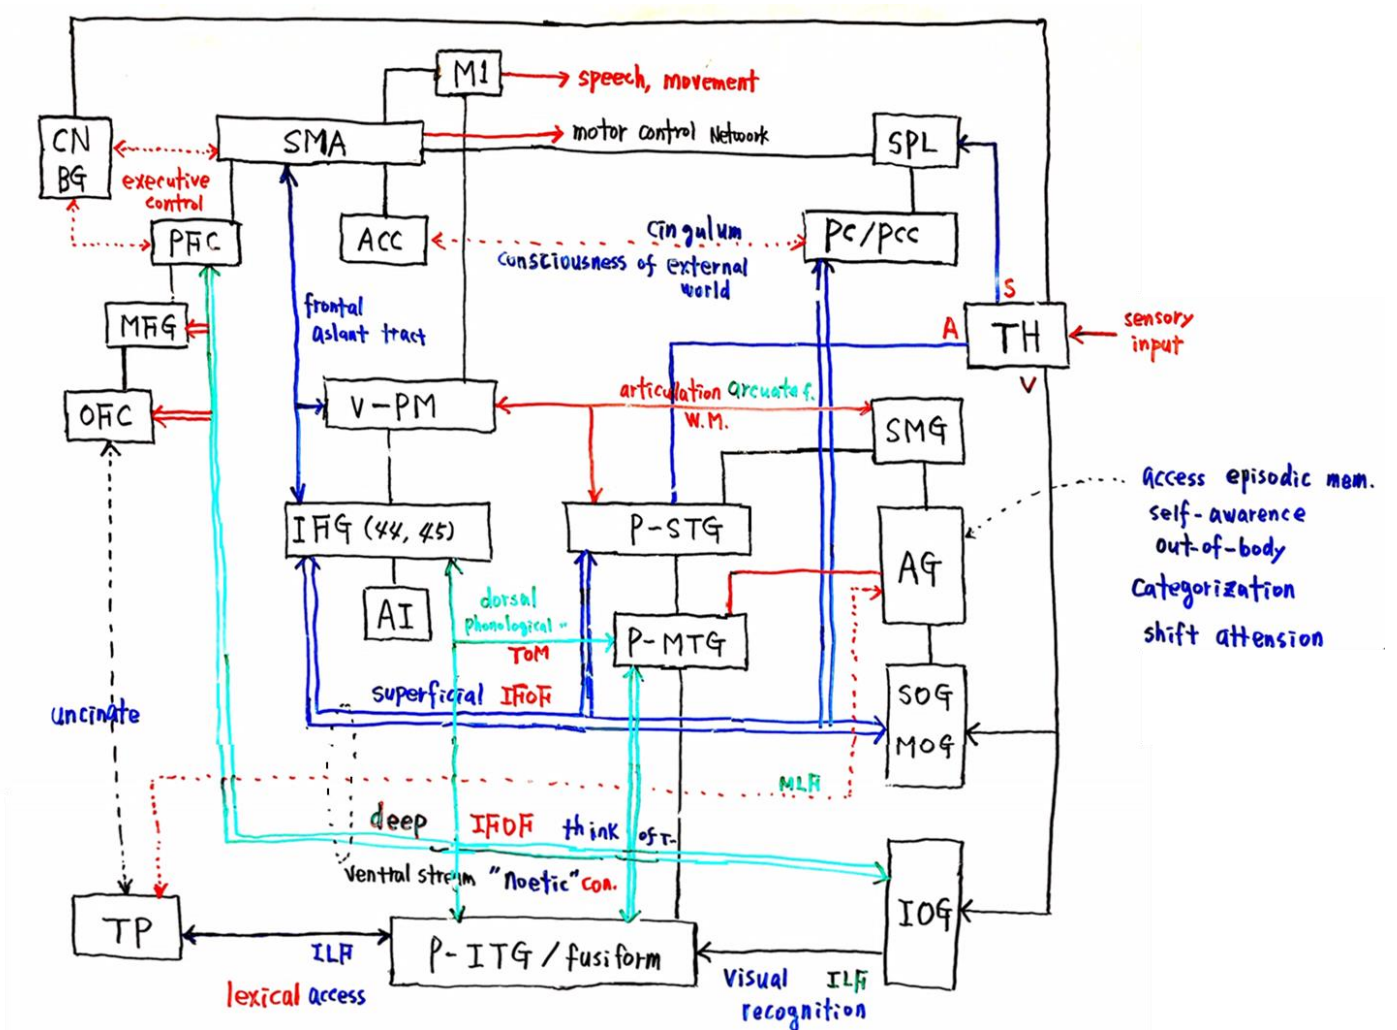 M1
speech, movement
CN
BG
SMA
motor control Network
SPL
executive
control
PFC
ACC
cingulum
consciousness of external
world
PC/PCC
S
A
TH
V
sensory
input
MFG
frontal
aslant tract
OFC
V-PM
articulation arcuate f.
W.M.
SMG
access episodic mem.
self-awarence
out-of-body
categorization
shift attension
IFG (44, 45)
P-STG
AG
AI
dorsal
phonological "
TOM
P-MTG
superficial IFOF
SOG
MOG
uncinate
MLF
deep IFOF think of T-
ventral stream "noetic" con.
TP
ILF
lexical access
P-ITG / fusiform
IOG
visual ILF
recognition